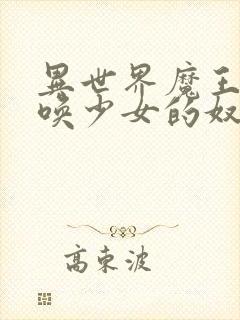 異世界魔王
喚少女的奴
高東波